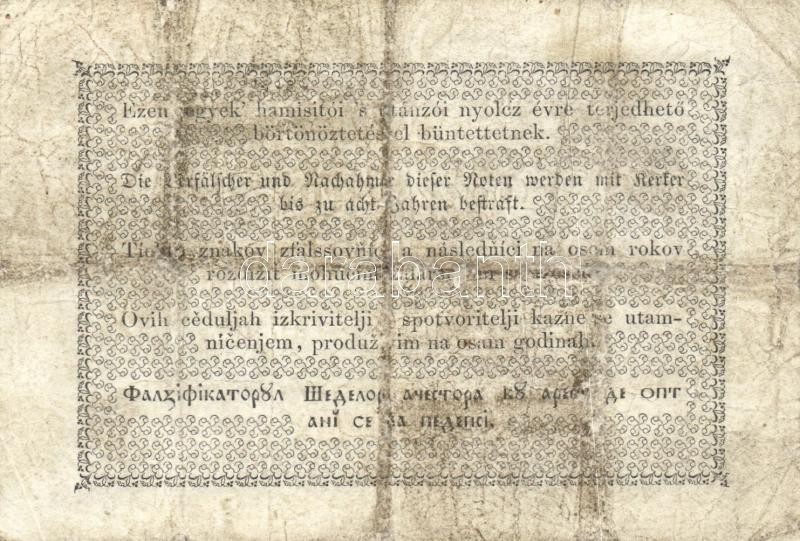 Ezen jegyek' hamisítói 's utánzói nyolcz évre terjedhető
börtönöztetéssel büntettetnek.
Die Verfälscher und Nachahmer dieser Noten werden mit Kerker
bis zu acht Jahren bestraft.
znakóv zfalssovňíci a následňíci na osem rokov
Ovih cĕduljah izkrivitelji i spotvoritelji kazne se utam-
ničenjem, produživim na osam godinah.
Фалꙃіфікаторꙋл Шеделор ачестора кꙋ арест де опт
анї се ва педепсі.
darabanth